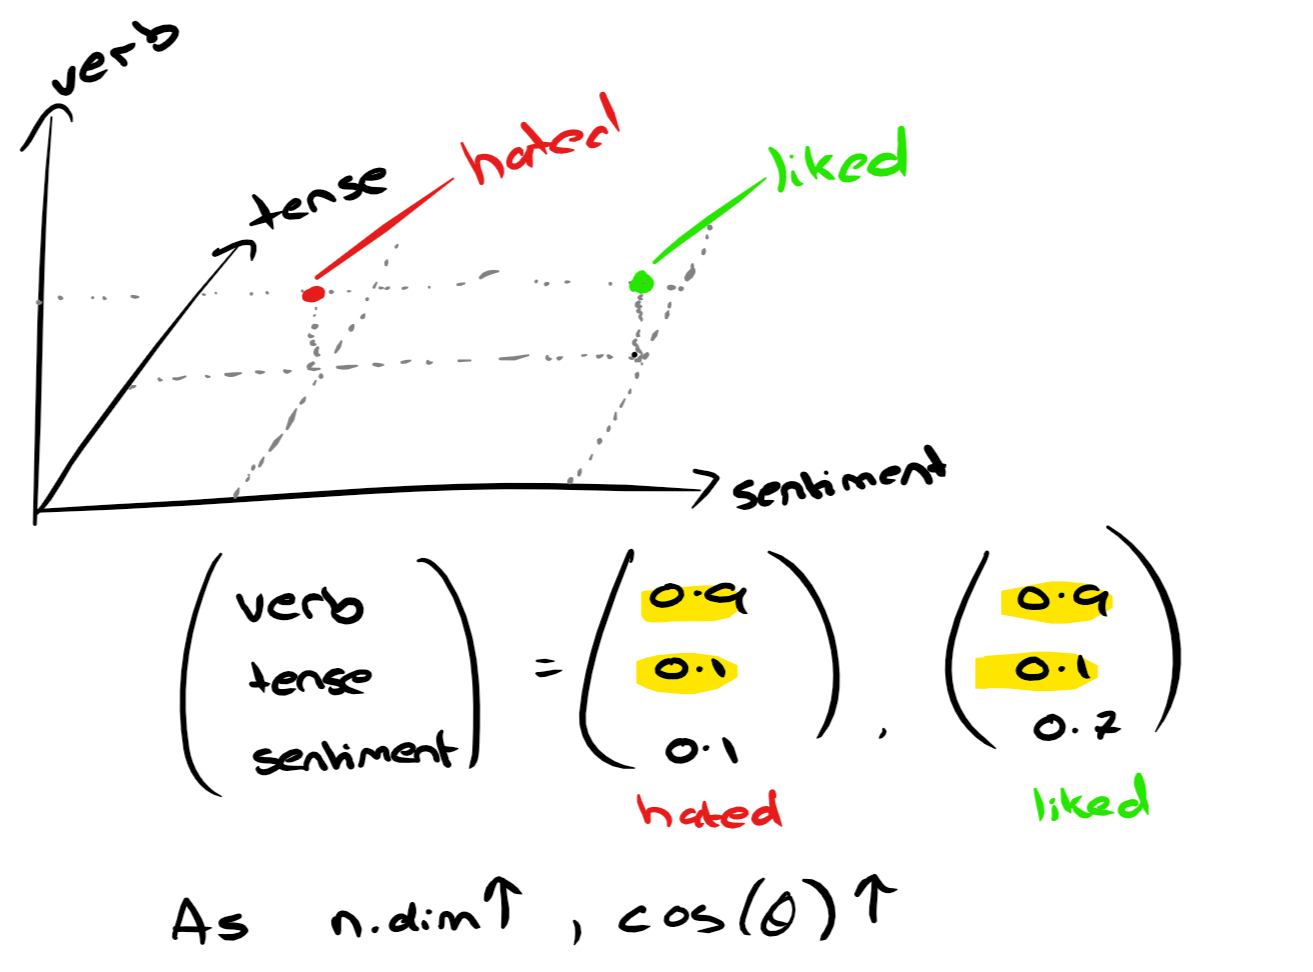 verb
tense
hated
liked
sentiment
verb
tense
sentiment
=
0.9
0.1
0.1
hated
,
0.9
0.1
0.7
liked
As n.dim↑, cos(θ)↑